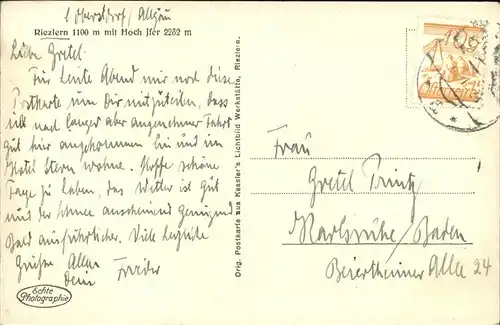 b. Oberstdorf / Allgäu
Riezlern 1100 m mit Hoch Ifer 2232 m
Liebe Gretel.
Für heute Abend nur noch diese
Postkarte um Dir mitzuteilen, dass
ich nach langer aber angenehmer Fahrt
gut hier angekommen bin und im
Hotel Stern wohne. Hoffe schöne
Tage zu haben, das Wetter ist gut
und der Schnee anscheinend genügend
Bald ausführlicher. Viele herzliche
Grüsse Allen
Dein Frieder
Echte
Photographie
Orig. Postkarte aus Kessler's Lichtbild Werkstätte, Riezlern.
Frau
Gretel Printz
Karlsruhe / Baden
Beiertheimer Allee 24